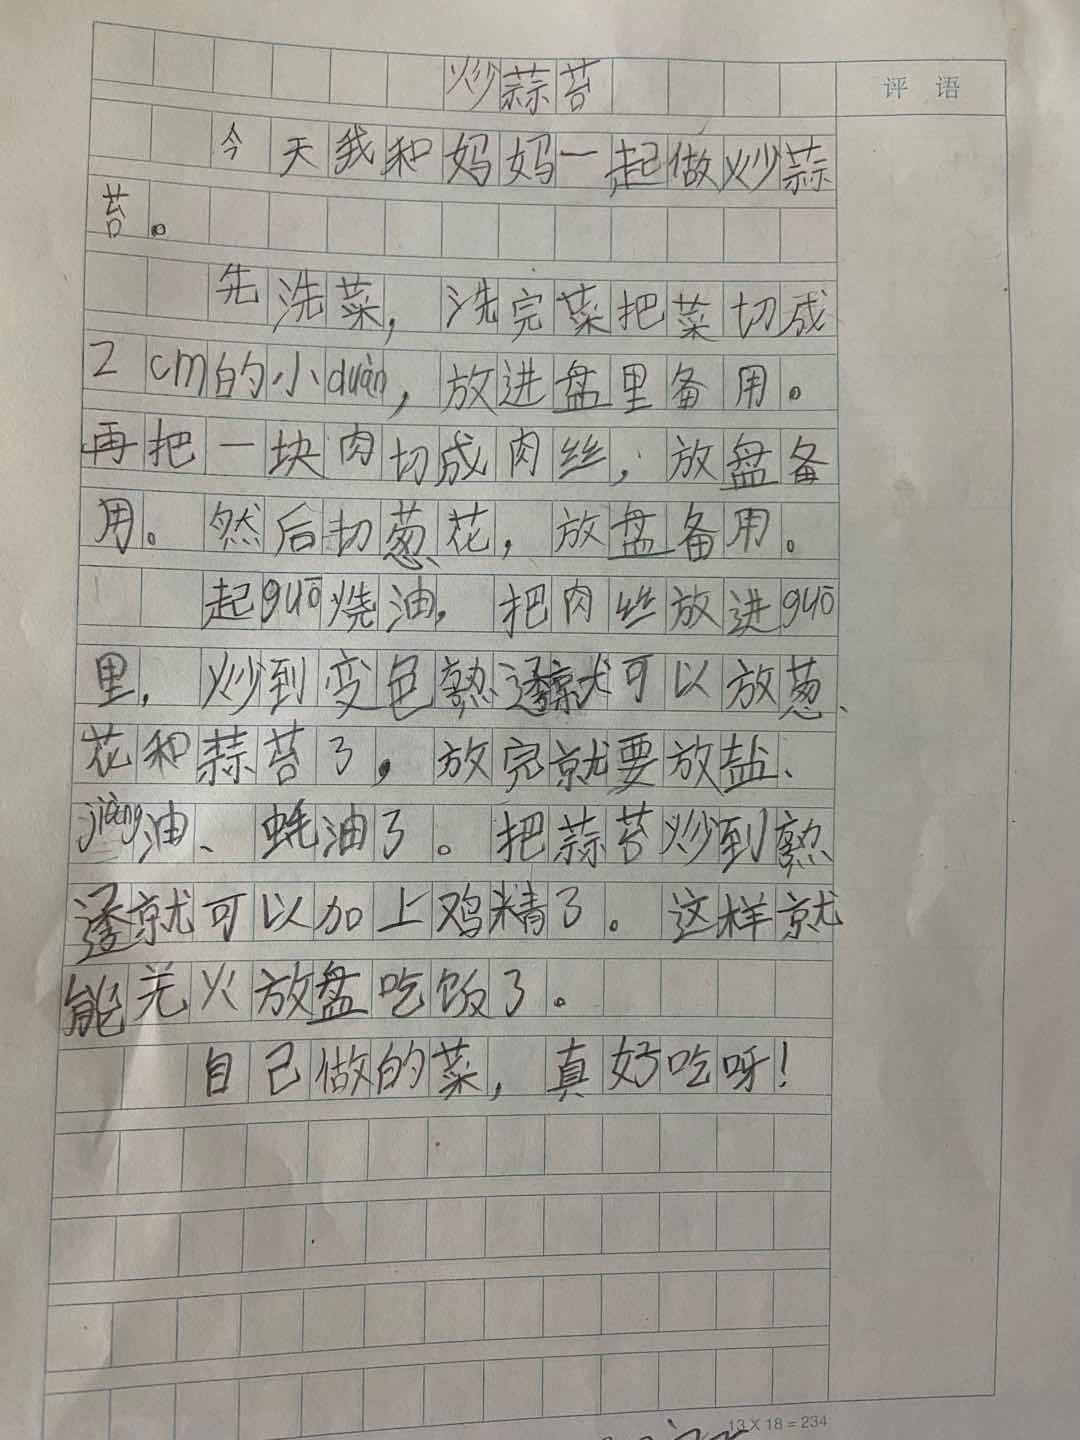 炒蒜苔
评语
今天我和妈妈一起做炒蒜
苔。
先洗菜，洗完菜把菜切成
2cm的小duàn，放进盘里备用。
再把一块肉切成肉丝，放盘备
用。然后切葱花，放盘备用。
起guō烧油，把肉丝放进guō
里，炒到变色熟透就可以放葱、
花和蒜苔了，放完就要放盐、
jiàng油、蚝油了。把蒜苔炒到熟
透就可以加上鸡精了。这样就
能关火放盘吃饭了。
自己做的菜，真好吃呀！
13×18=234